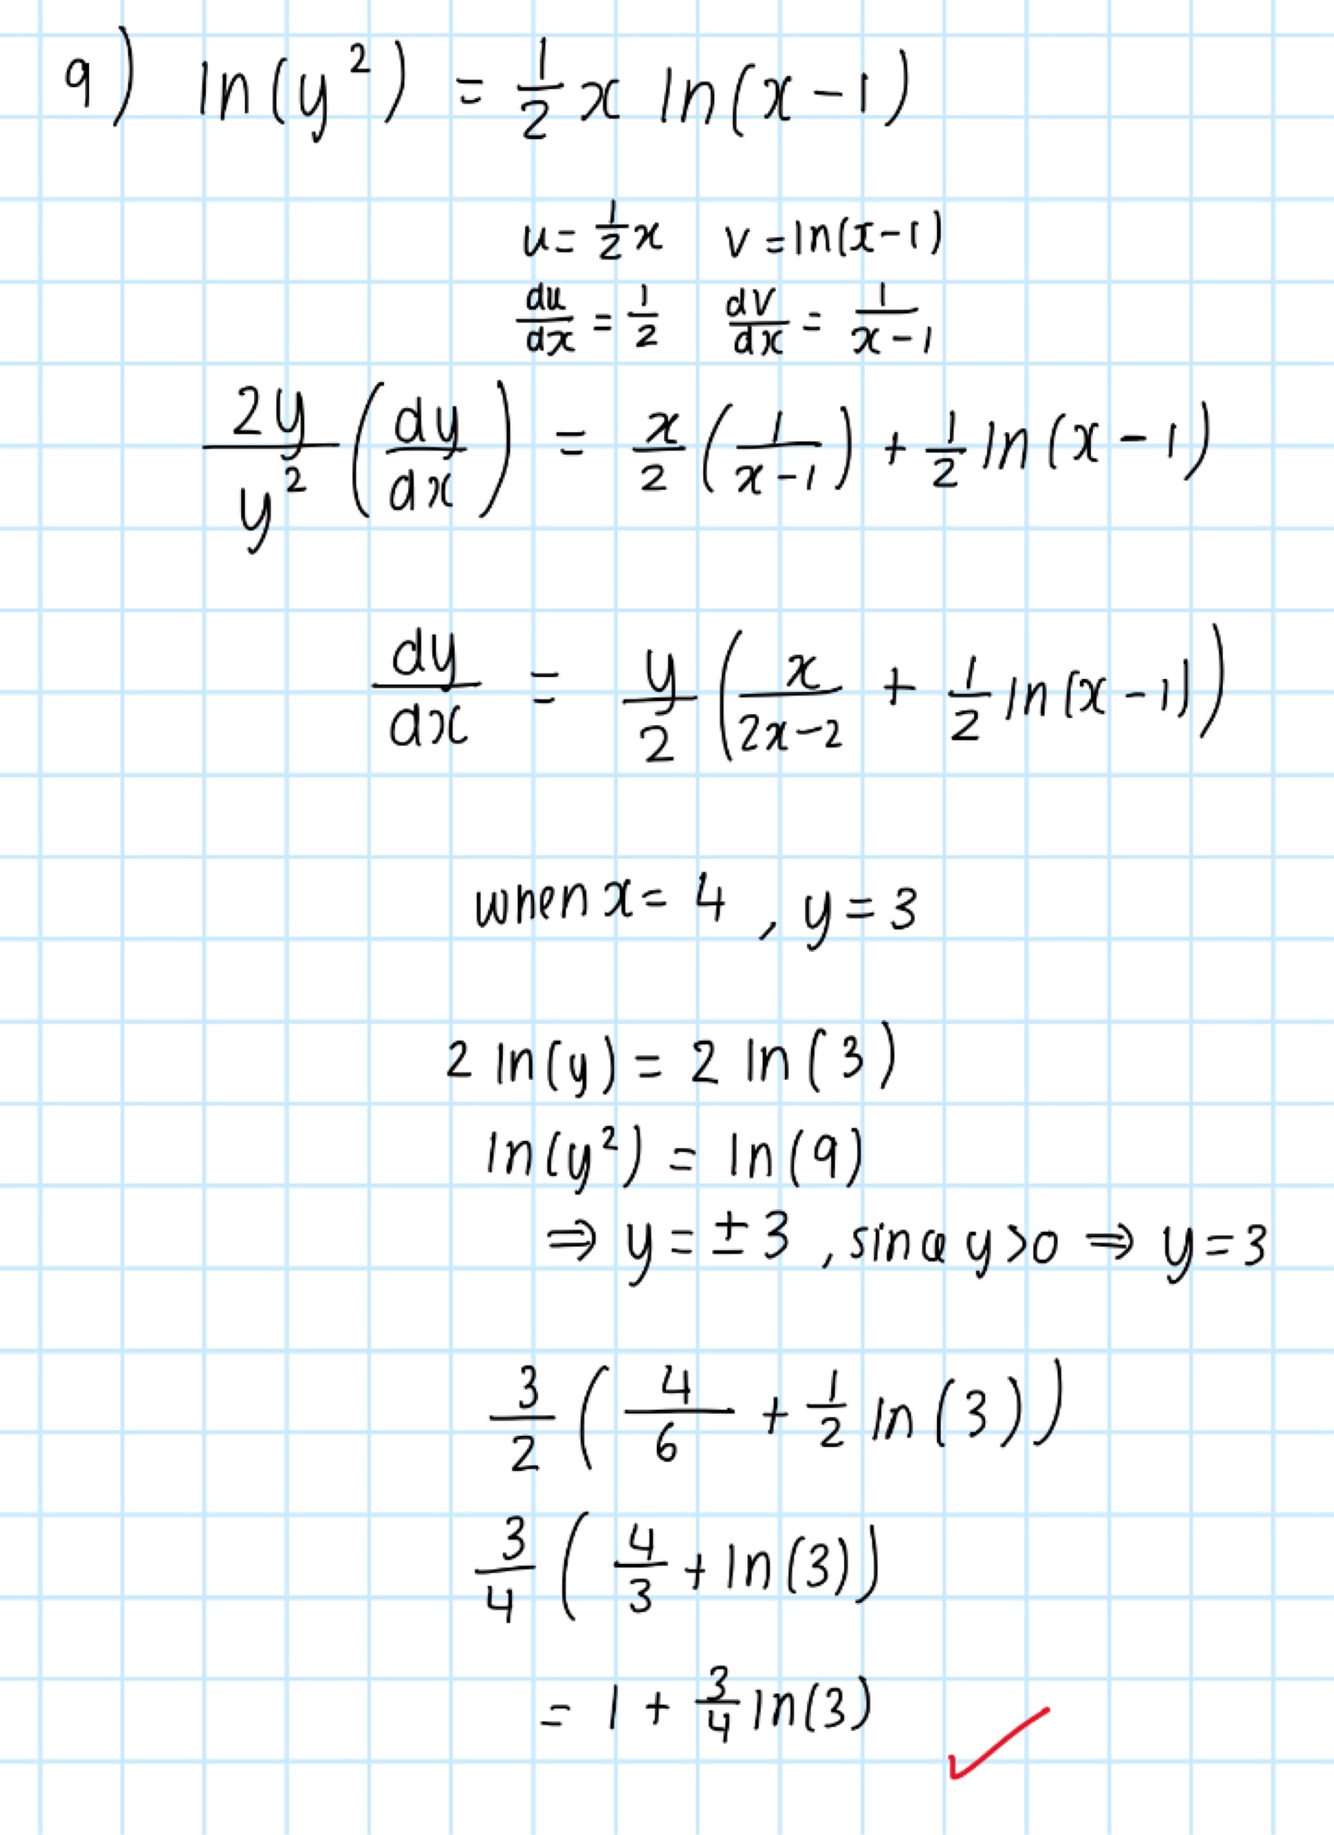 9) ln(y²) = 1/2 x ln(x-1)
u = 1/2 x   v = ln(x-1)
du/dx = 1/2   dv/dx = 1/(x-1)
2y/y² (dy/dx) = x/2 (1/(x-1)) + 1/2 ln(x-1)
dy/dx = y/2 (x/(2x-2) + 1/2 ln(x-1))
when x = 4, y = 3
2 ln(y) = 2 ln(3)
ln(y²) = ln(9)
⇒ y = ±3, since y>0 ⇒ y=3
3/2 (4/6 + 1/2 ln(3))
3/4 (4/3 + ln(3))
= 1 + 3/4 ln(3)